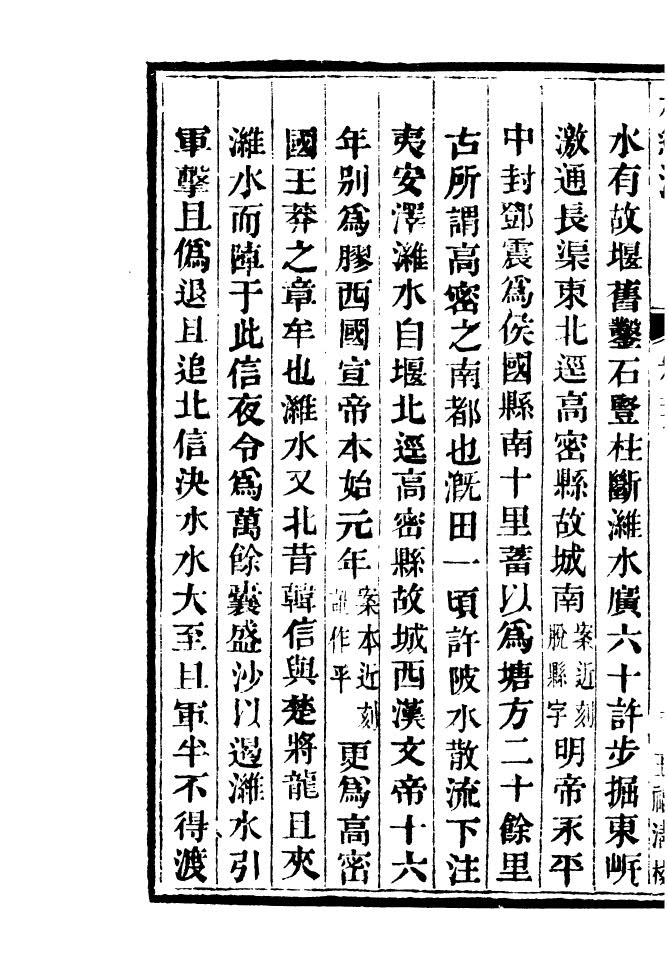 水有故堰舊鑿石豎柱斷濰水廣六十許步掘東岸
激通長渠東北逕高密縣故城南案近刻脫縣字明帝永平
中封鄧震為侯國縣南十里蓄以為塘方二十餘里
古所謂高密之南都也漑田一頃許陂水散流下注
夷安澤濰水自堰北逕高密縣故城西漢文帝十六
年別為膠西國宣帝本始元年案本近刻訛作平更為高密
國王莽之章牟也濰水又北昔韓信與楚將龍且夾
濰水而陣于此信夜令為萬餘囊盛沙以遏濰水引
軍擊且僞退且追北信決水水大至且軍半不得渡